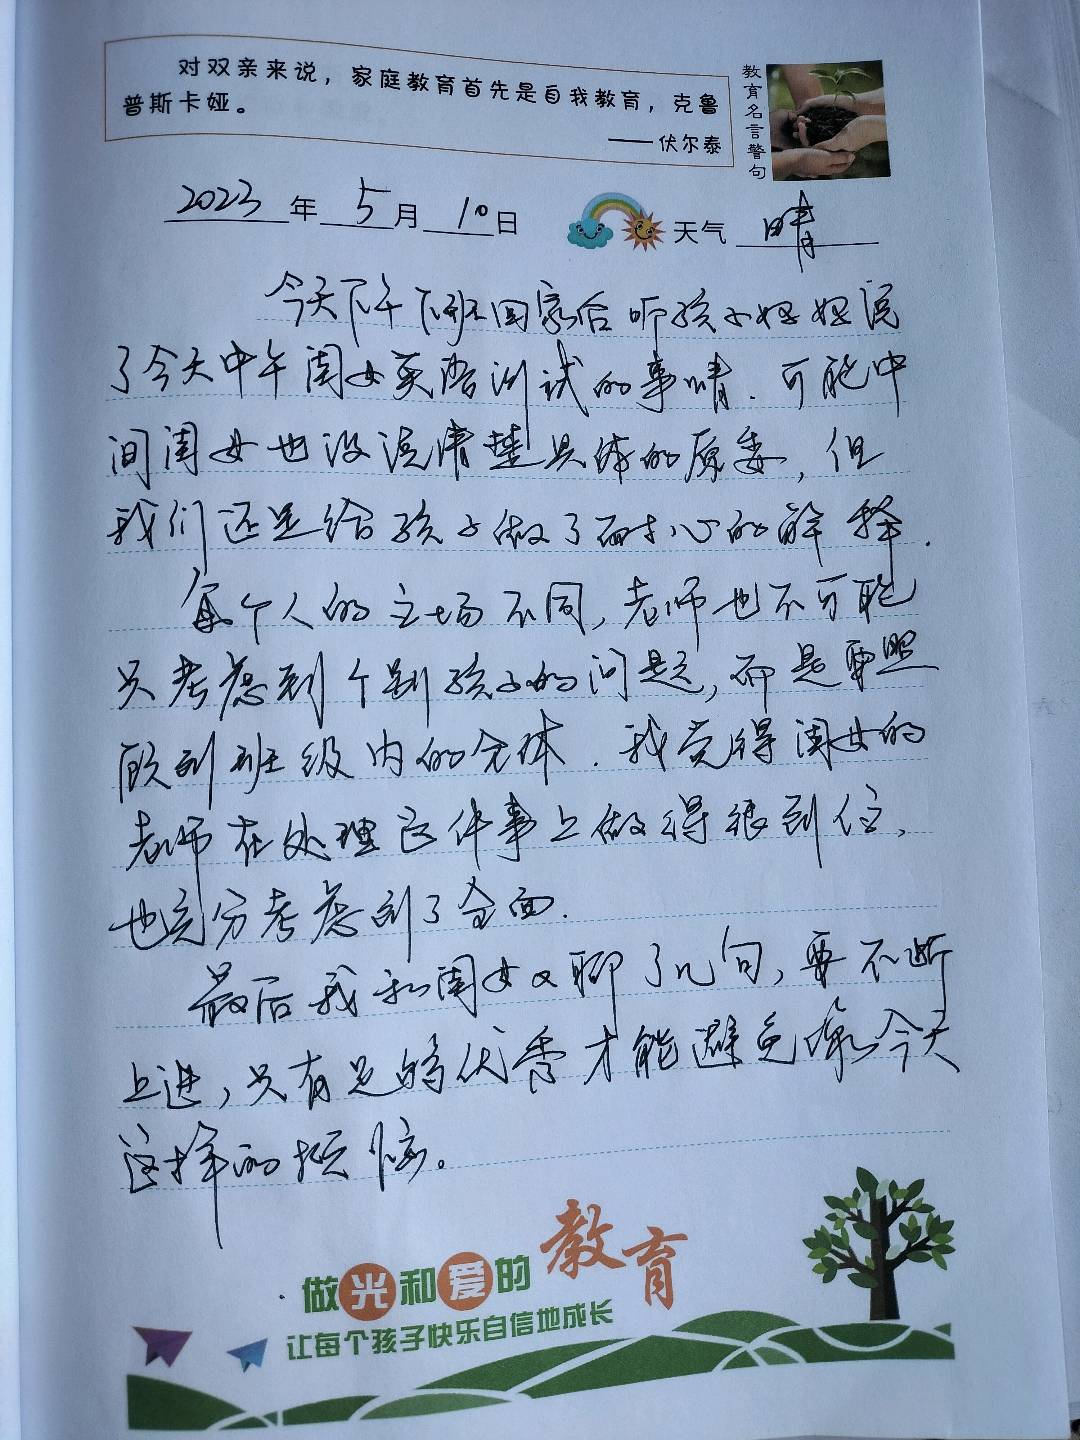 对双亲来说，家庭教育首先是自我教育，克鲁
普斯卡娅。
——伏尔泰
教育名言警句
2023年5月10日 天气 晴
今天下午下班回家后听孩子妈妈说
了今天中午闺女英语测试的事情．可能中
间闺女也没说清楚具体的原委，但
我们还是给孩子做了耐心的解释．
每个人的立场不同，老师也不可能
只考虑到个别孩子的问题，而是要照
顾到班级内的全体．我觉得闺女的
老师在处理这件事上做得很到位，
也充分考虑到了全面．
最后我和闺女又聊了几句，要不断
上进，只有足够优秀才能避免像今天
这样的烦恼。
做光和爱的教育
让每个孩子快乐自信地成长